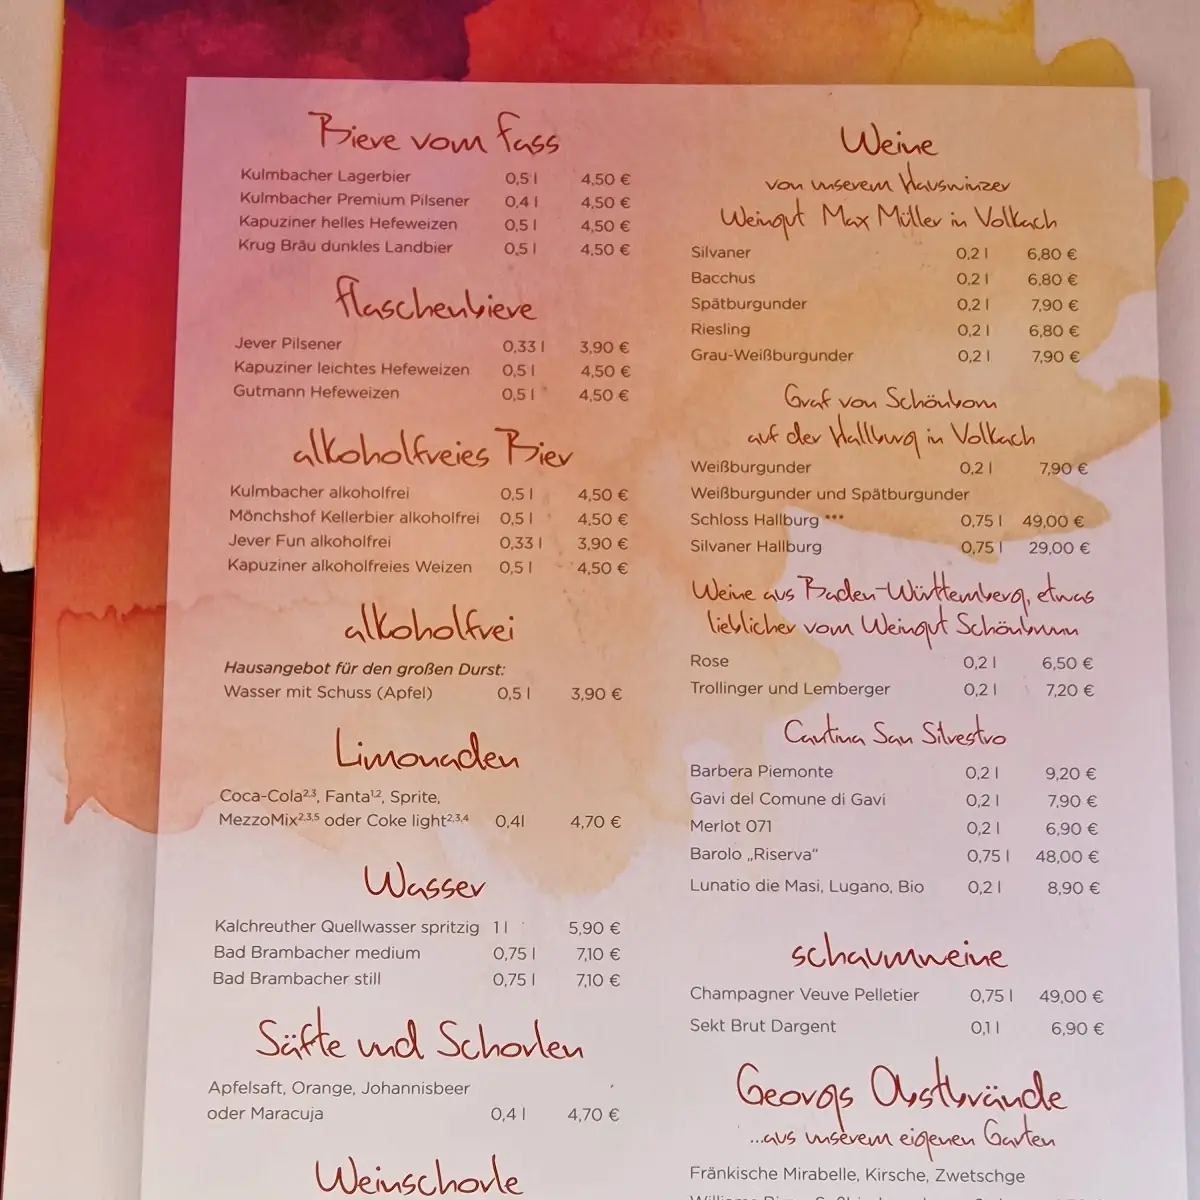 Biere vom Fass
Kulmbacher Lagerbier 0,5 l 4,50 €
Kulmbacher Premium Pilsener 0,4 l 4,50 €
Kapuziner helles Hefeweizen 0,5 l 4,50 €
Krug Bräu dunkles Landbier 0,5 l 4,50 €
Flaschenbiere
Jever Pilsener 0,33 l 3,90 €
Kapuziner leichtes Hefeweizen 0,5 l 4,50 €
Gutmann Hefeweizen 0,5 l 4,50 €
alkoholfreies Bier
Kulmbacher alkoholfrei 0,5 l 4,50 €
Mönchshof Kellerbier alkoholfrei 0,5 l 4,50 €
Jever Fun alkoholfrei 0,33 l 3,90 €
Kapuziner alkoholfreies Weizen 0,5 l 4,50 €
alkoholfrei
Hausangebot für den großen Durst:
Wasser mit Schuss (Apfel) 0,5 l 3,90 €
Limonaden
Coca-Cola²,³, Fanta¹,², Sprite,
MezzoMix²,³,⁵ oder Coke light²,³,⁴ 0,4l 4,70 €
Wasser
Kalchreuther Quellwasser spritzig 1 l 5,90 €
Bad Brambacher medium 0,75 l 7,10 €
Bad Brambacher still 0,75 l 7,10 €
Säfte und Schorlen
Apfelsaft, Orange, Johannisbeer
oder Maracuja 0,4 l 4,70 €
Weinschorle
Weine
von unserem Hauswinzer
Weingut Max Müller in Volkach
Silvaner 0,2 l 6,80 €
Bacchus 0,2 l 6,80 €
Spätburgunder 0,2 l 7,90 €
Riesling 0,2 l 6,80 €
Grau-Weißburgunder 0,2 l 7,90 €
Graf von Schönborn
auf der Hallburg in Volkach
Weißburgunder 0,2 l 7,90 €
Weißburgunder und Spätburgunder
Schloss Hallburg *** 0,75 l 49,00 €
Silvaner Hallburg 0,75 l 29,00 €
Weine aus Baden-Württemberg, etwas
lieblicher vom Weingut Schönbrunn
Rose 0,2 l 6,50 €
Trollinger und Lemberger 0,2 l 7,20 €
Cantina San Silvestro
Barbera Piemonte 0,2 l 9,20 €
Gavi del Comune di Gavi 0,2 l 7,90 €
Merlot 071 0,2 l 6,90 €
Barolo „Riserva“ 0,75 l 48,00 €
Lunatio die Masi, Lugano, Bio 0,2 l 8,90 €
schaumweine
Champagner Veuve Pelletier 0,75 l 49,00 €
Sekt Brut Dargent 0,1 l 6,90 €
Georgs Obstbrände
...aus unserem eigenen Garten
Fränkische Mirabelle, Kirsche, Zwetschge